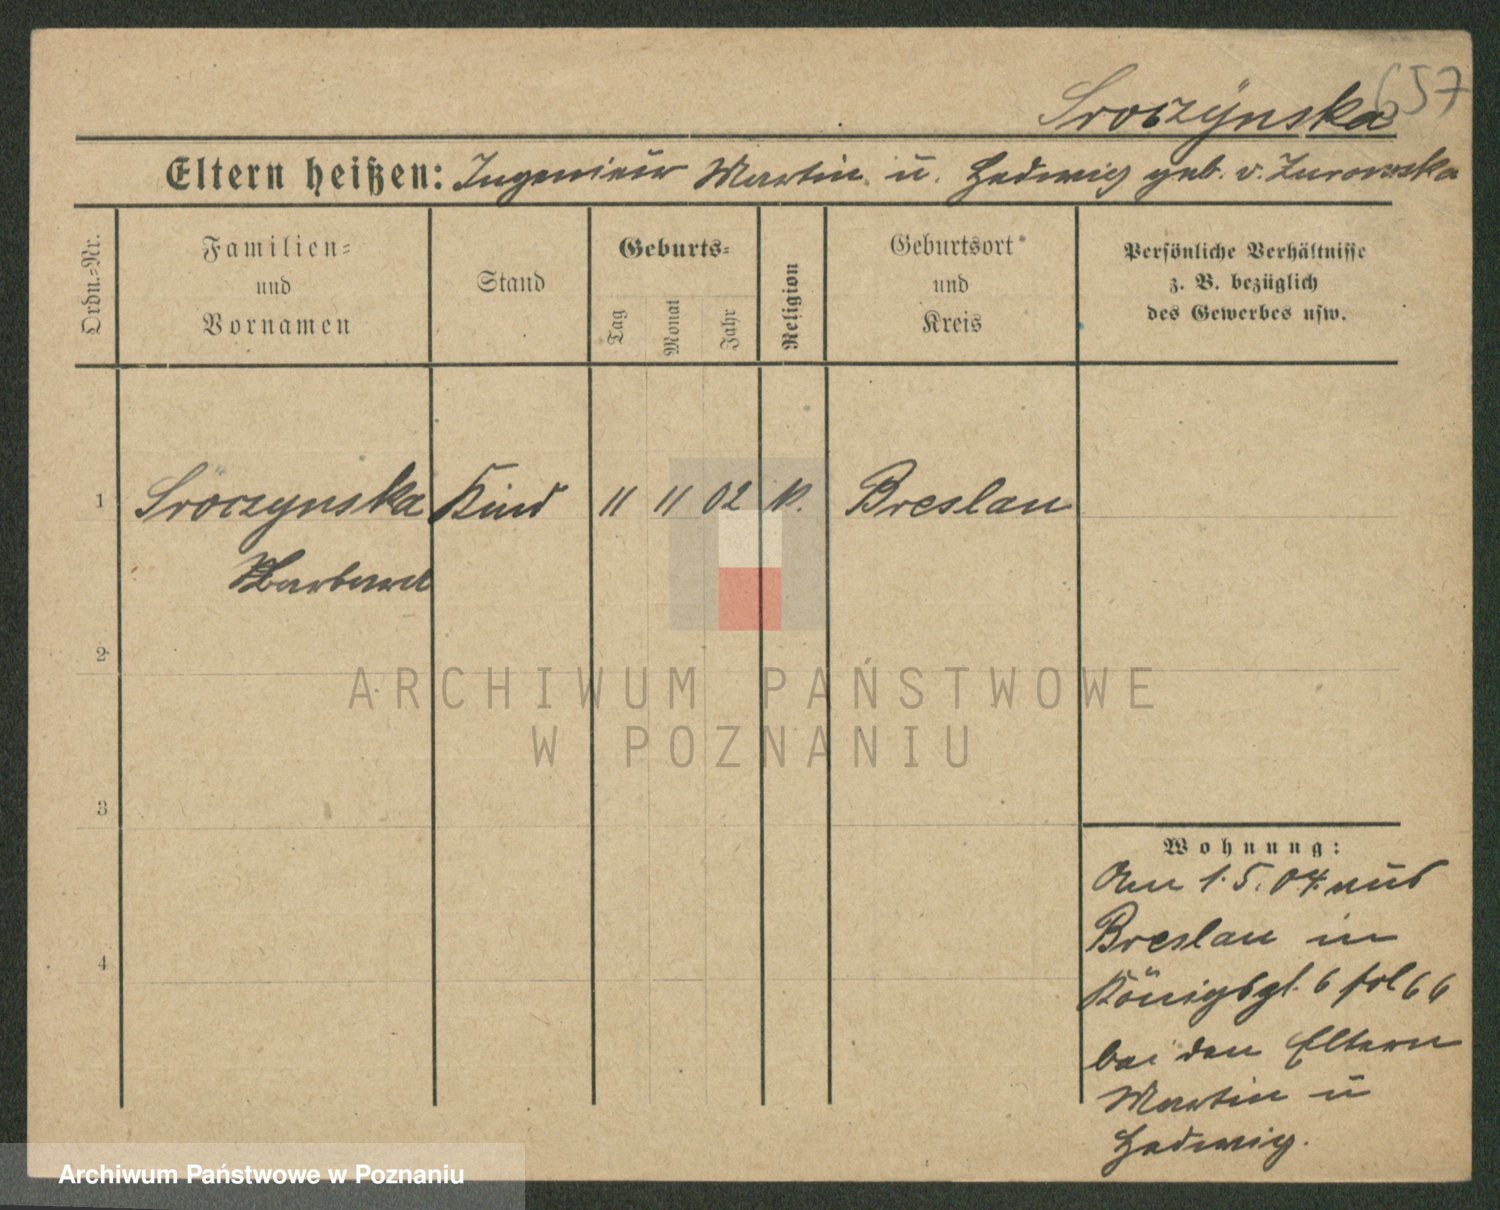 657
Sroczynska
Eltern heißen: Ingenieur Martin u. Hedwig geb. v. Zurowska
Ordn.=Nr.
Familien=
und
Vornamen
Stand
Geburts=
Tag
Monat
Jahr
Religion
Geburtsort
und
Kreis
Persönliche Verhältnisse
z. B. bezüglich
des Gewerbes usw.
1 Sroczynska Kind 11 11 02 k. Breslau
Barbara
2
3
4
Wohnung:
Am 1.5.04 aus
Breslau in
Königspl. 6 fol 66
bei den Eltern
Martin u
Hedwig.
ARCHIWUM PAŃSTWOWE
W POZNANIU
Archiwum Państwowe w Poznaniu